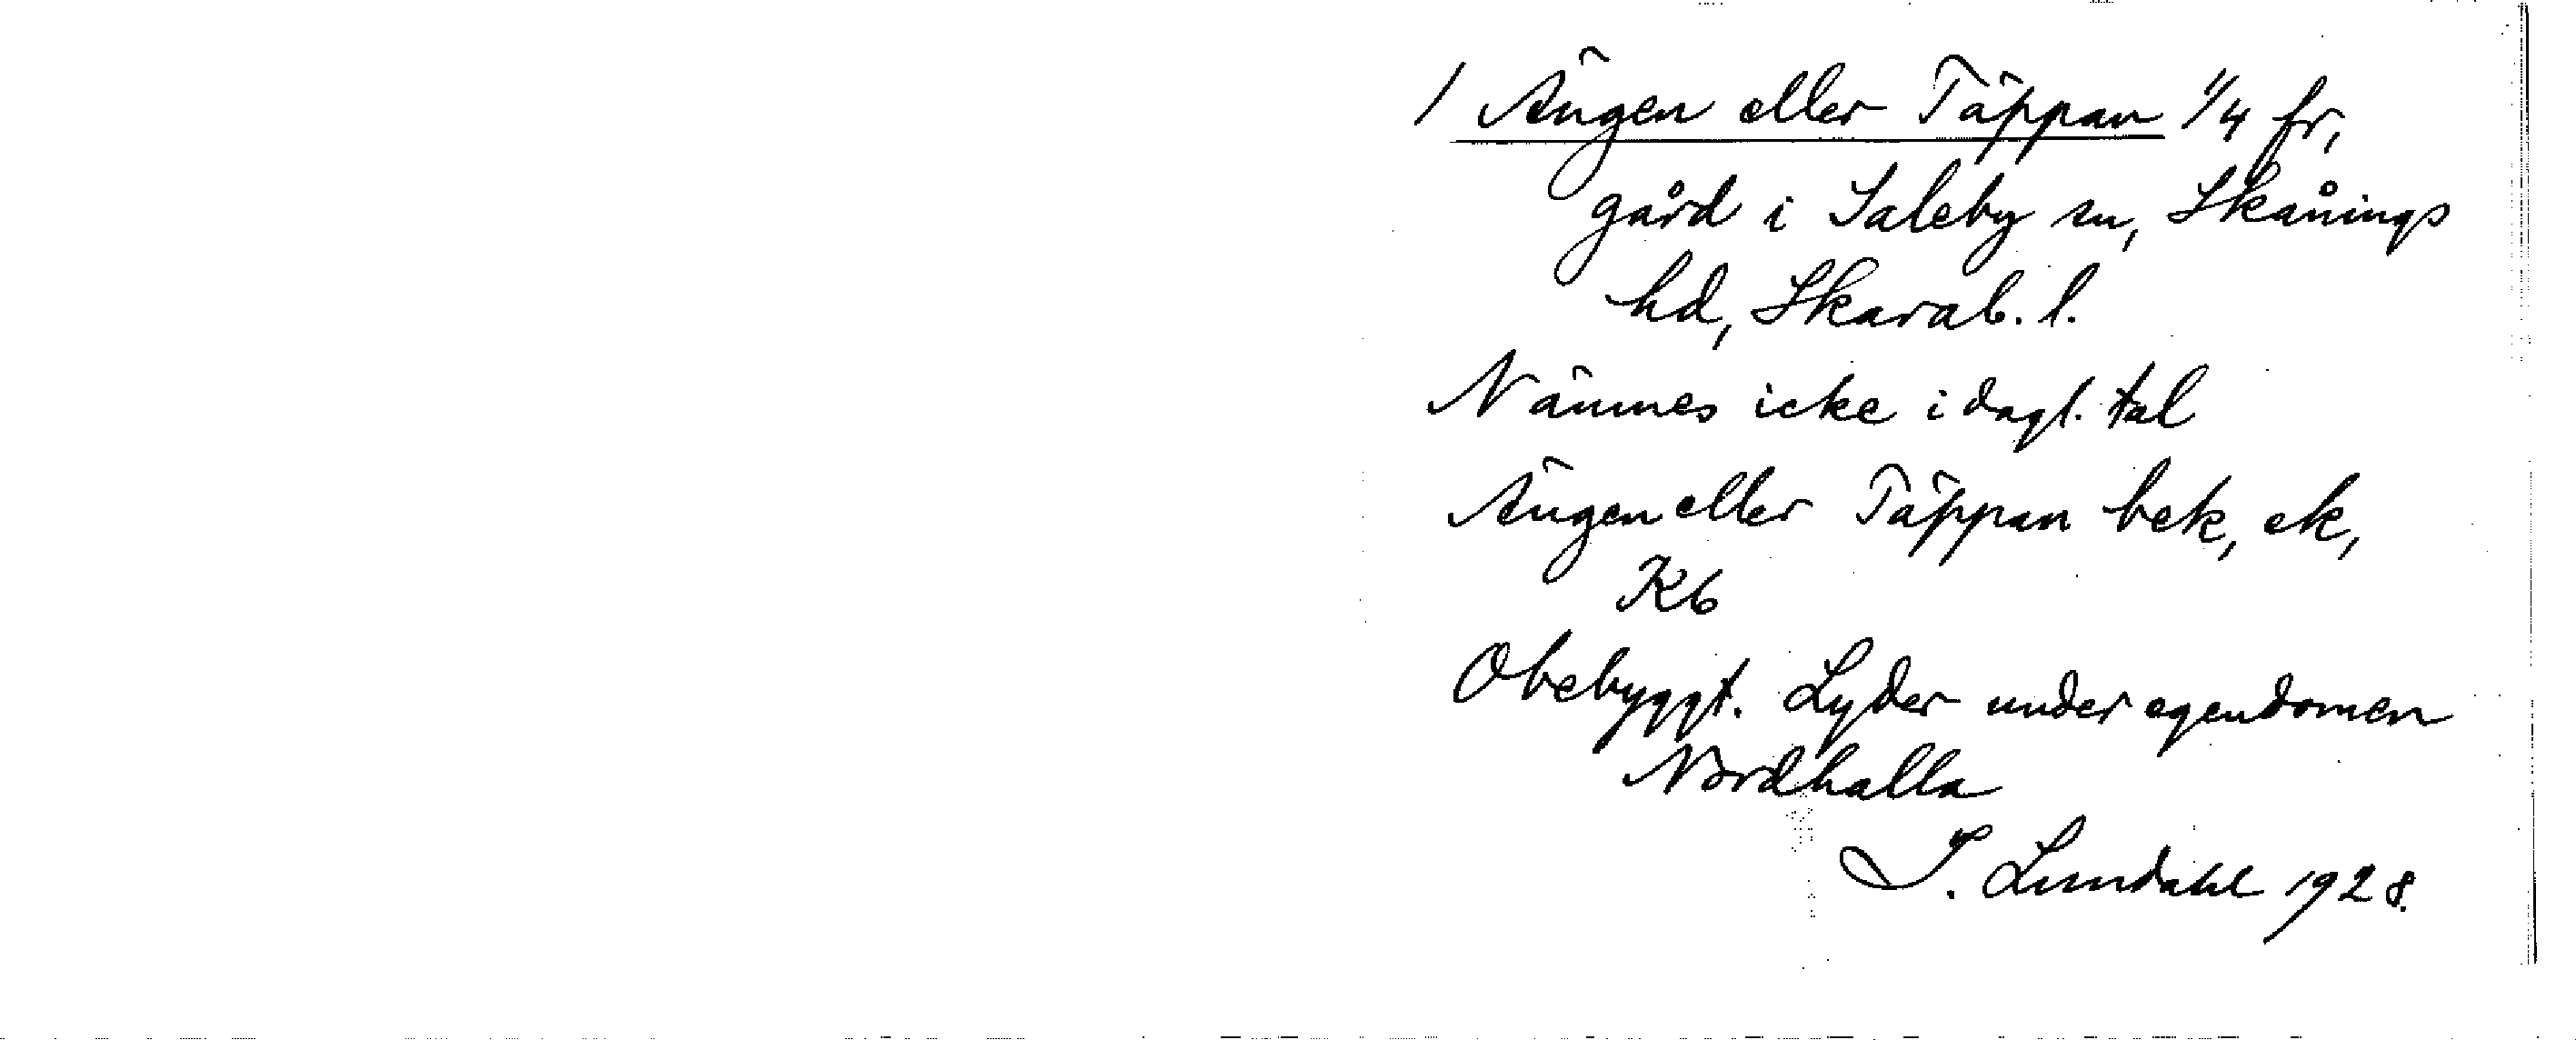 / Ängen eller Täppan 1/4 fr,
gård i Saleby sn, Skånings
hd, Skarab. l.
Nämnes icke i dagl. tal
Ängen eller Täppan bek, ek,
Kb
Obebyggt. Lyder under egendomen
Nordhalla
I. Lundahl 1928.